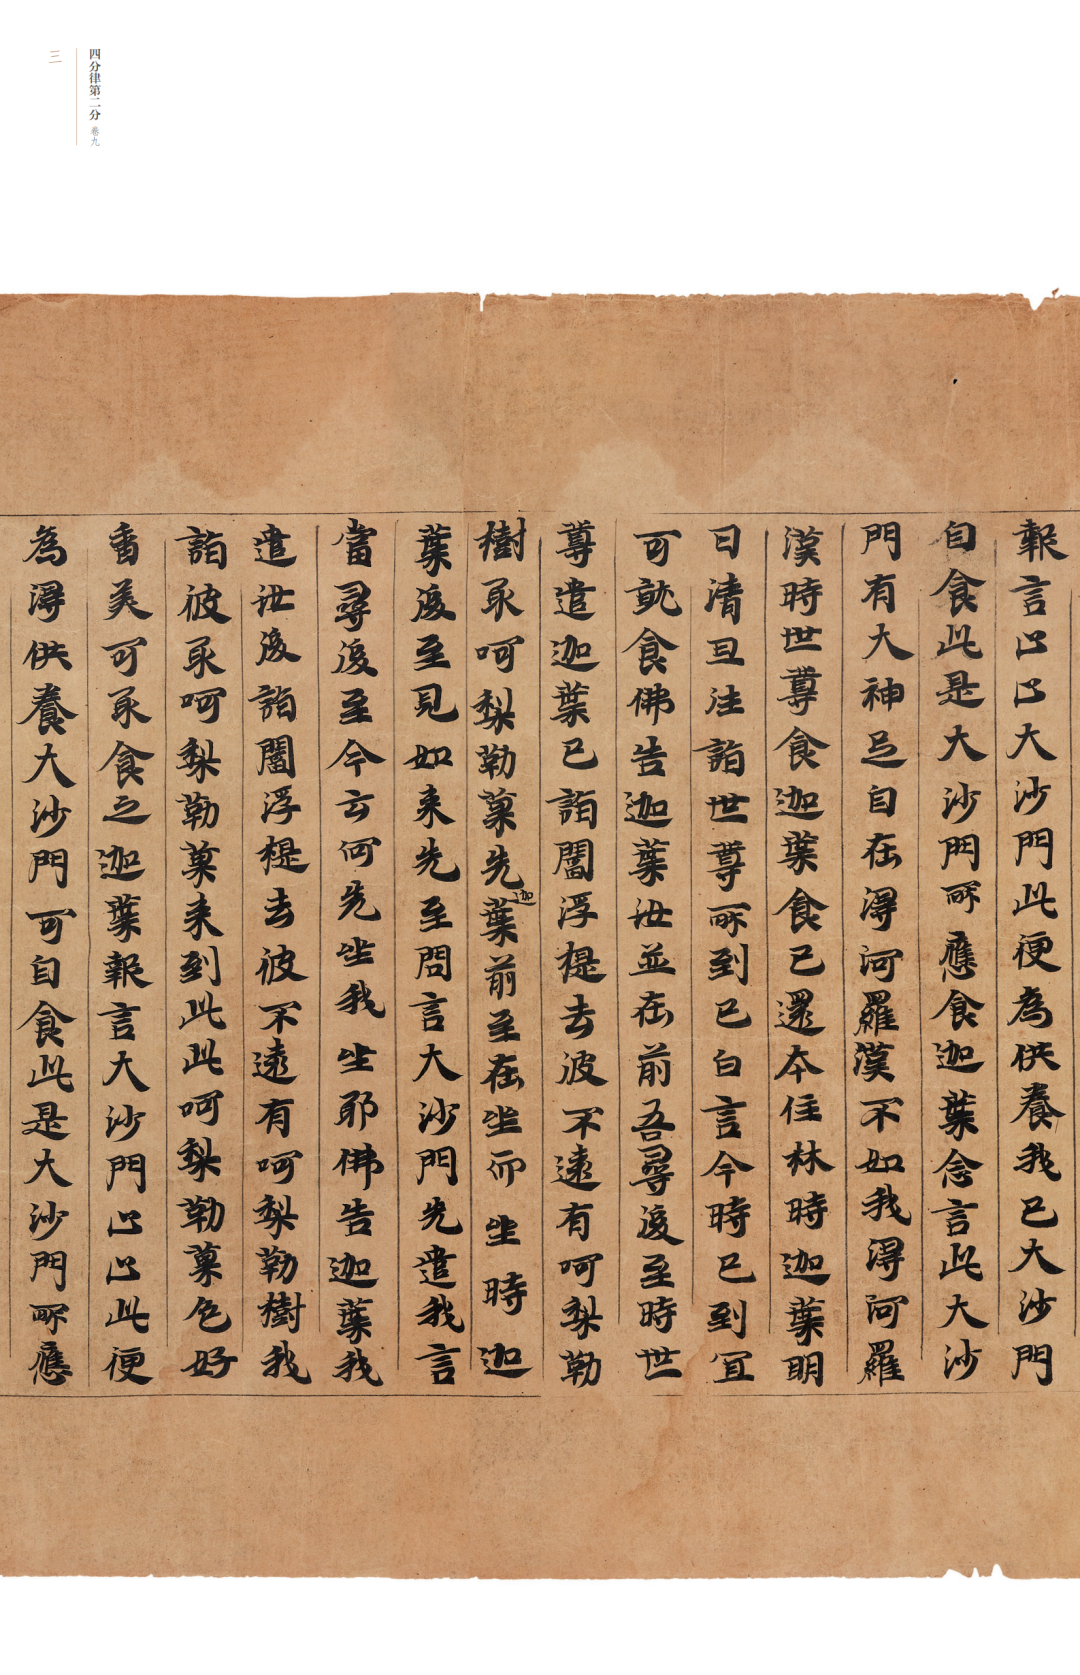 四分律第二分 卷九
三
報言止止大沙門此便為供養我已大沙門
自食此是大沙門所應食迦葉念言此大沙
門有大神足自在得阿羅漢不如我得阿羅
漢時世尊食迦葉食已還本住林時迦葉明
日清旦往詣世尊所到已白言今時已到宜
可就食佛告迦葉汝並在前吾尋後至時世
尊遣迦葉已詣閻浮提去彼不遠有呵梨勒
樹取呵梨勒菓先迦葉前至在坐而坐時迦
葉後至見如来先至問言大沙門先遣我言
當尋後至今云何先坐我坐耶佛告迦葉我
遣汝後詣閻浮提去彼不遠有呵梨勒樹我
詣彼取呵梨勒菓来到此此呵梨勒菓色好
香美可取食之迦葉報言大沙門止止此便
為得供養大沙門可自食此是大沙門所應